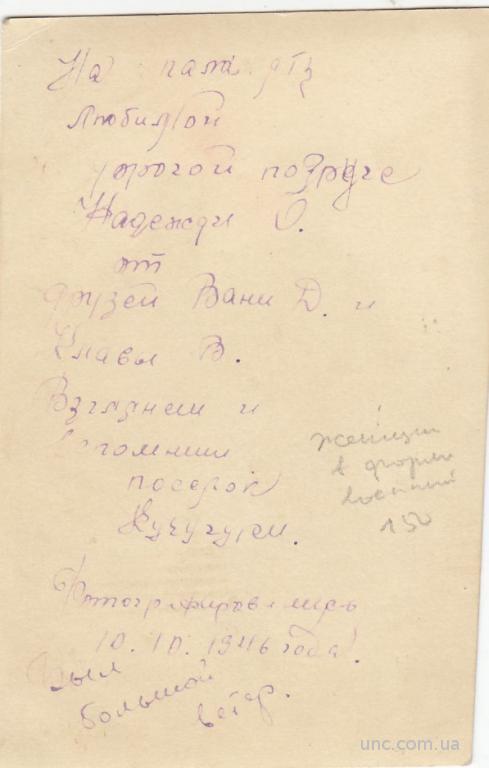 На память
Любимой
дорогой подруге
Надежди О.
от
друзей Вани Д. и
Клавы В.
Взглянем и
вспомним
поселок
Кучугуры.
Фотографировались
10. 10. 1946 года.
Был
большой
ветер.
женщин
в форме
военный
150
unc.com.ua